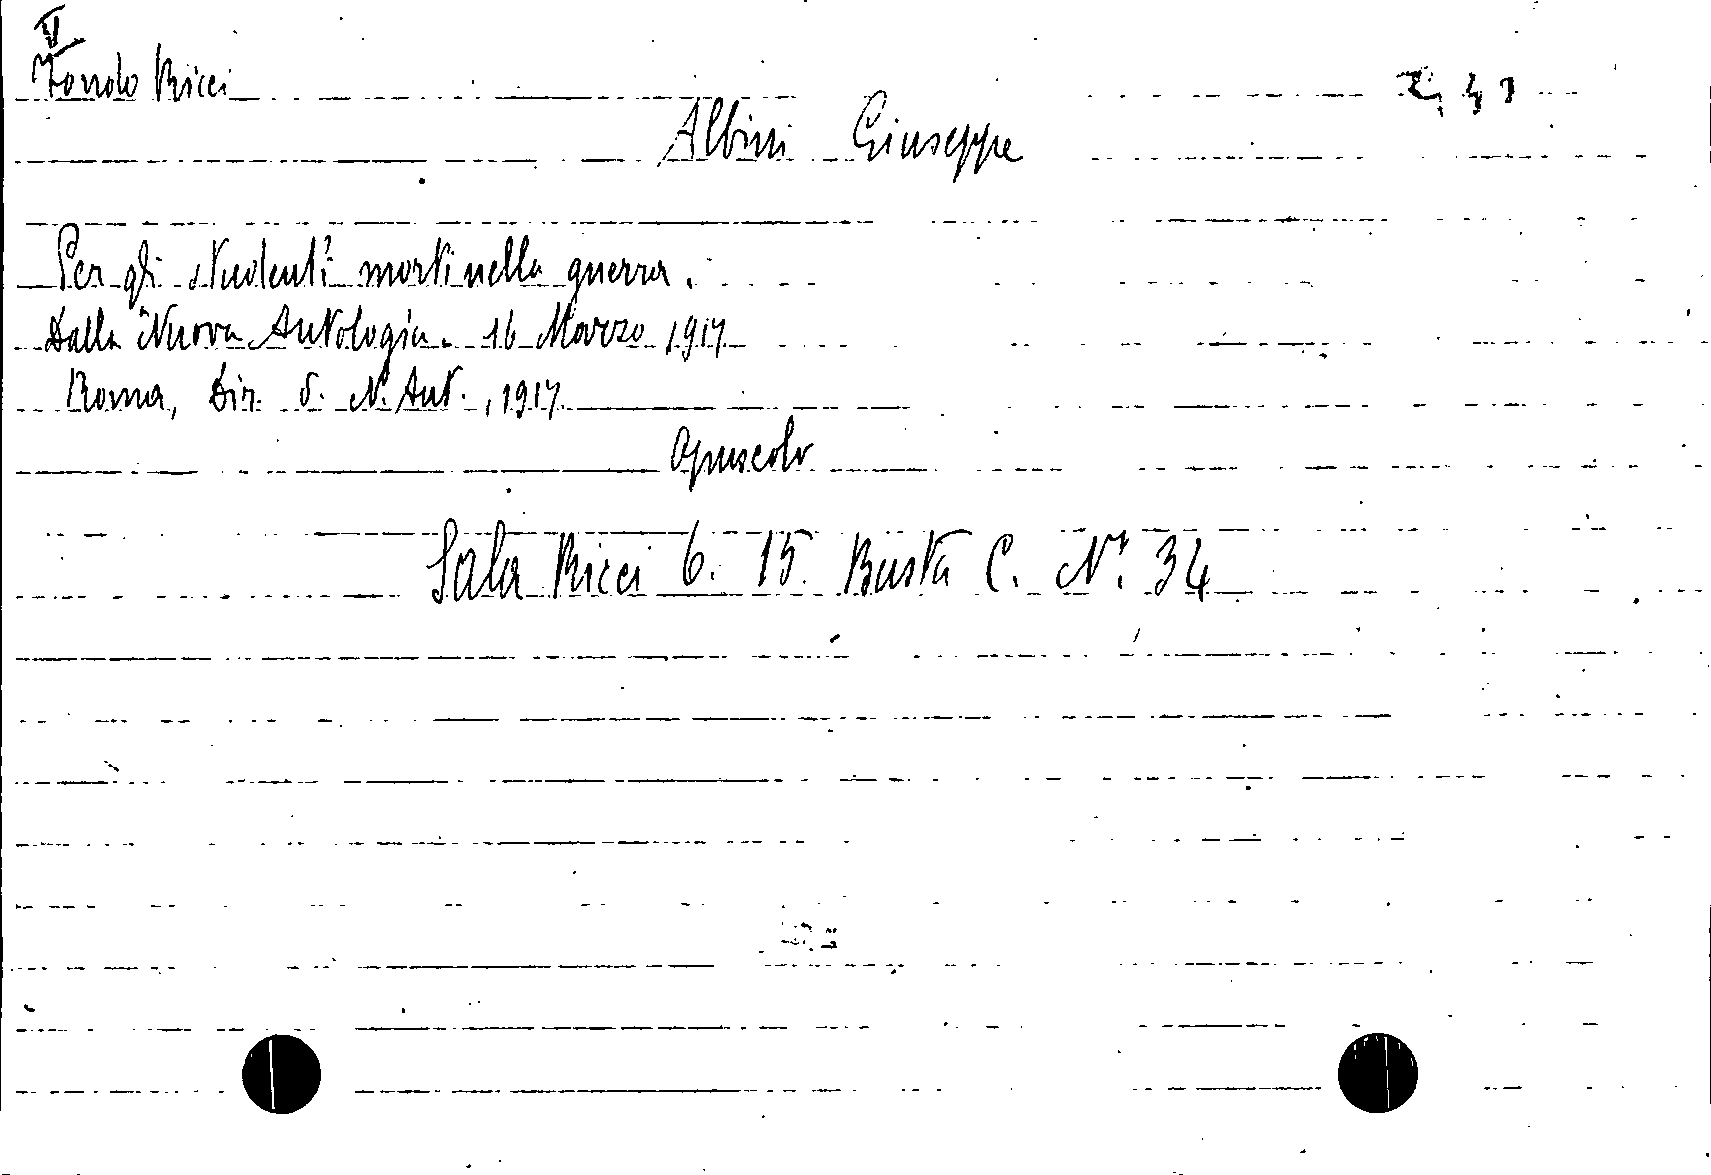 V
Fondo Ricci
Albini Giuseppe
Per gli studenti morti nella guerra.
Dalla Nuova Antologia. 16 Marzo 1917
Roma, Dir. d. N. Ant., 1917
Opuscolo
Sala Ricci 6. 15. Busta C. Nº. 34